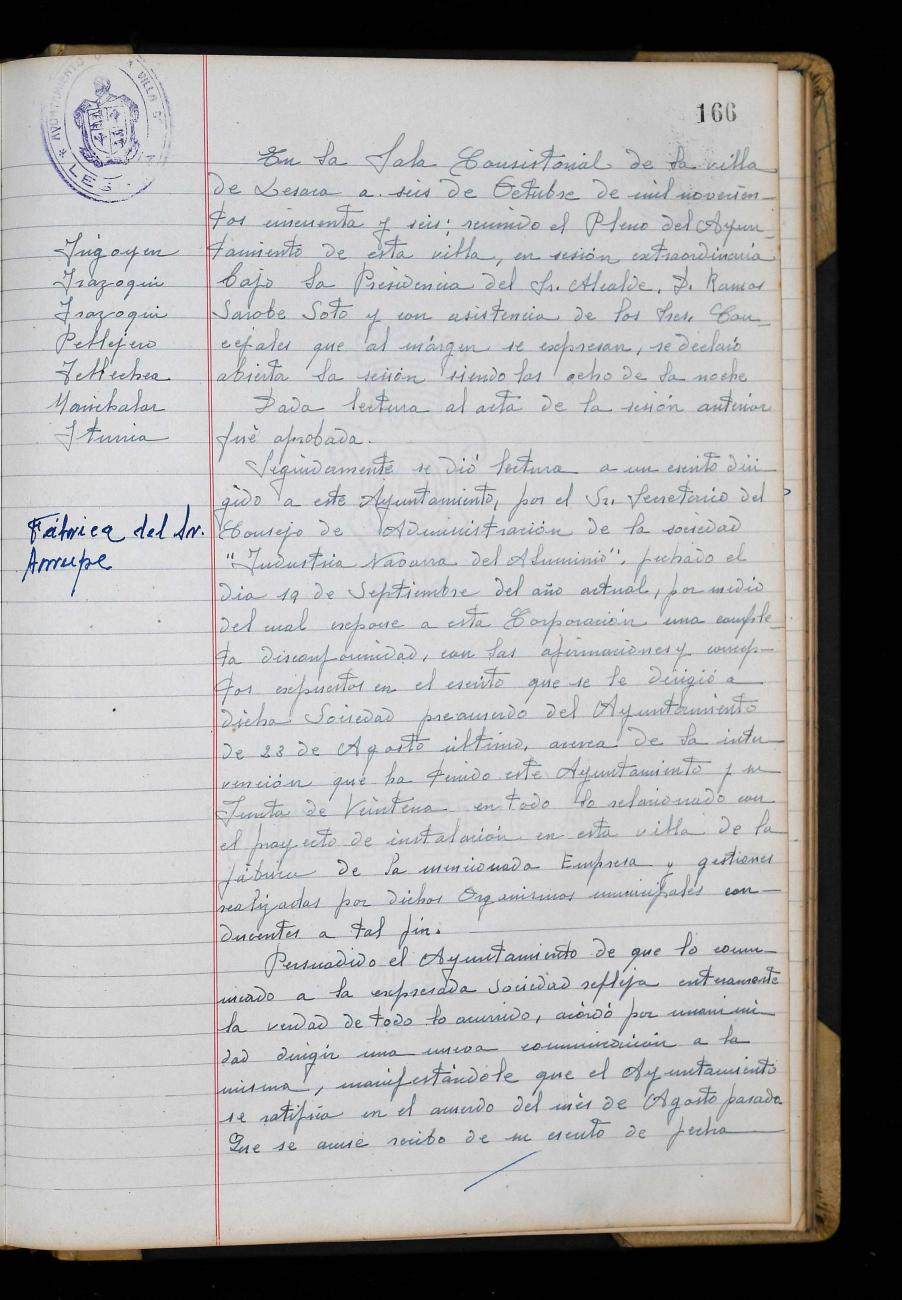 AYUNTAMIENTO DE LA VILLA DE
* LES A *
166
En la Sala Consistorial de la villa
de Lesaca a seis de Octubre de mil novecien-
tos cincuenta y seis; reunido el Pleno del Ayun-
tamiento de esta villa, en sesión extraordinaria
bajo la Presidencia del Sr. Alcalde, D. Ramos
Sarobe Soto y con asistencia de los Sres. Con-
cejales que al márgen se expresan, se declaró
abierta la sesión siendo las ocho de la noche
Dada lectura al acta de la sesión anterior
fué aprobada.
Irigoyen
Irazoqui
Irazoqui
Pellejero
Tellechea
Marichalar
Iturria
Seguidamente se dió lectura a un escrito diri-
gido a este Ayuntamiento, por el Sr. Secretario del
Consejo de Administración de la sociedad
"Industria Navarra del Aluminio", fechado el
dia 19 de Septiembre del año actual, por medio
del cual expone a esta Corporación una comple-
ta disconformidad, con las afirmaciones y concep-
tos expuestos en el escrito que se le dirigió a
dicha Sociedad preacuerdo del Ayuntamiento
de 23 de Agosto último, acerca de la inter
vención que ha tenido este Ayuntamiento y su
Junta de Veintena en todo lo relacionado con
el proyecto de instalación en esta villa de la
fábrica de la mencionada Empresa y gestiones
realizadas por dichos Organismos municipales con-
ducentes a tal fin.
Fábrica del Sr.
Arrupe
Persuadido el Ayuntamiento de que lo comu-
nicado a la expresada Sociedad refleja enteramente
la verdad de todo lo ocurrido, acordó por unanimi-
dad dirigir una nueva comunicación a la
misma, manifestándole que el Ayuntamiento
se ratifica en el acuerdo del mes de Agosto pasado
Que se acuse recibo de su escrito de fecha